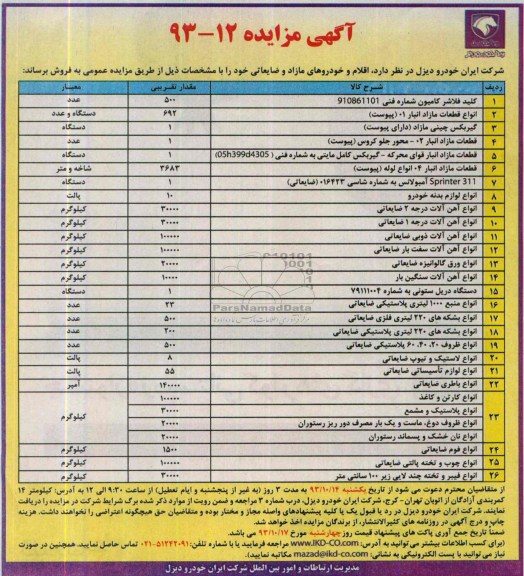 آگهی مزایده ۱۲-۹۳
شرکت ایران خودرو دیزل در نظر دارد، اقلام و خودروهای مازاد و ضایعاتی خود را با مشخصات ذیل از طریق مزایده عمومی به فروش برساند:
ردیف شرح کالا مقدار تقریبی معیار
۱ کلید فلاشر کامیون شماره فنی 910861101 ۵۰۰ عدد
۲ انواع قطعات مازاد انبار ۰۱ (پیوست) ۶۹۲ دستگاه و عدد
۳ گیربکس چینی مازاد (دارای پیوست) ۱ دستگاه
۴ قطعات مازاد انبار ۰۲ - محور جلو کروس (پیوست) ۱ عدد
۵ قطعات مازاد انبار قوای محرکه - گیربکس کامل مایتی به شماره فنی (05h399d4305) ۱ دستگاه
۶ قطعات مازاد انبار ۰۴ انواع لوله (پیوست) ۳۶۸۳ شاخه و متر
۷ Sprinter 311 آمبولانس به شماره شاسی ۰۱۶۴۲۳ (ضایعاتی) ۱ دستگاه
۸ انواع لوازم بدنه خودرو ۱۰ پالت
۹ انواع آهن آلات درجه ۲ ضایعاتی ۳۰۰۰۰ کیلوگرم
۱۰ انواع آهن آلات درجه ۱ ضایعاتی ۳۰۰۰۰ کیلوگرم
۱۱ انواع آهن آلات ذوبی ضایعاتی ۱۰۰۰۰۰ کیلوگرم
۱۲ انواع آهن آلات سفت بار ضایعاتی ۱۰۰۰۰۰ کیلوگرم
۱۳ انواع ورق گالوانیزه ضایعاتی ۲۰۰۰۰ کیلوگرم
۱۴ انواع آهن آلات سنگین بار ۱۰۰۰۰ کیلوگرم
۱۵ دستگاه دریل ستونی به شماره ۷۹۱۱۱۰۰۴ ۱ دستگاه
۱۶ انواع منبع ۱۰۰۰ لیتری پلاستیکی ضایعاتی ۲۳ عدد
۱۷ انواع بشکه های ۲۲۰ لیتری فلزی ضایعاتی ۵۰۰ عدد
۱۸ انواع بشکه های ۲۲۰ لیتری پلاستیکی ضایعاتی ۲۰۰ عدد
۱۹ انواع ظروف ۲۰، ۴۰، ۶۰ پلاستیکی ضایعاتی ۵۰۰ عدد
۲۰ انواع لاستیک و تیوپ ضایعاتی ۸ پالت
۲۱ انواع لوازم تأسیساتی ضایعاتی ۵۵ پالت
۲۲ انواع باطری ضایعاتی ۱۴۰۰۰۰ آمپر
۲۳ انواع کارتن و کاغذ ۱۰۰۰۰۰ کیلوگرم
انواع پلاستیک و مشمع ۳۰۰۰۰
انواع ظروف دوغ، ماست و یک بار مصرف دور ریز رستوران ۲۰۰۰۰
انواع نان خشک و پسماند رستوران ۲۰۰۰۰
۲۴ انواع فوم ضایعاتی ۱۵۰۰ کیلوگرم
۲۵ انواع چوب و تخته پالتی ضایعاتی ۱۰۰۰۰۰ کیلوگرم
۲۶ انواع فیبر و تخته چند لایی زیر ۱۰۰ سانتی متر ۳۰۰۰۰ کیلوگرم
ParsNamadData
از متقاضیان محترم دعوت می شود از تاریخ یکشنبه ۹۳/۱۰/۱۴ به مدت ۳ روز (به غیر از پنجشنبه و ایام تعطیل) از ساعت ۹:۳۰ الی ۱۲ به آدرس: کیلومتر ۱۴
کمربندی آزادگان از اتوبان تهران - کرج، شرکت ایران خودرو دیزل، درب شماره ۳ مراجعه و ضمن رویت از موارد ذکر شده برگ شرایط شرکت در مزایده را دریافت
نمایند. شرکت ایران خودرو دیزل در رد یا قبول یک یا کلیه پیشنهادهای واصله مجاز و مختار بوده و متقاضیان حق هیچگونه اعتراضی را نخواهند داشت. هزینه
چاپ و درج آگهی در روزنامه های کثیرالانتشار، از برندگان مزایده اخذ خواهد شد.
ضمنا تاریخ جمع آوری پاکت های پیشنهاد قیمت روز چهارشنبه مورخ ۹۳/۱۰/۱۷ می باشد.
(برای کسب اطلاعات بیشتر می توانید به آدرس: www.IKD-CO.com مراجعه فرمایید یا با شماره تلفن: ۵۱۲۴۲۰۹۱-۰۲۱ تماس حاصل نمایید. همچنین در صورت
نیاز می توانید با پست الکترونیکی به نشانی: mazad@ikd-co.com مکاتبه نمایید).
مدیریت ارتباطات و امور بین الملل شرکت ایران خودرو دیزل